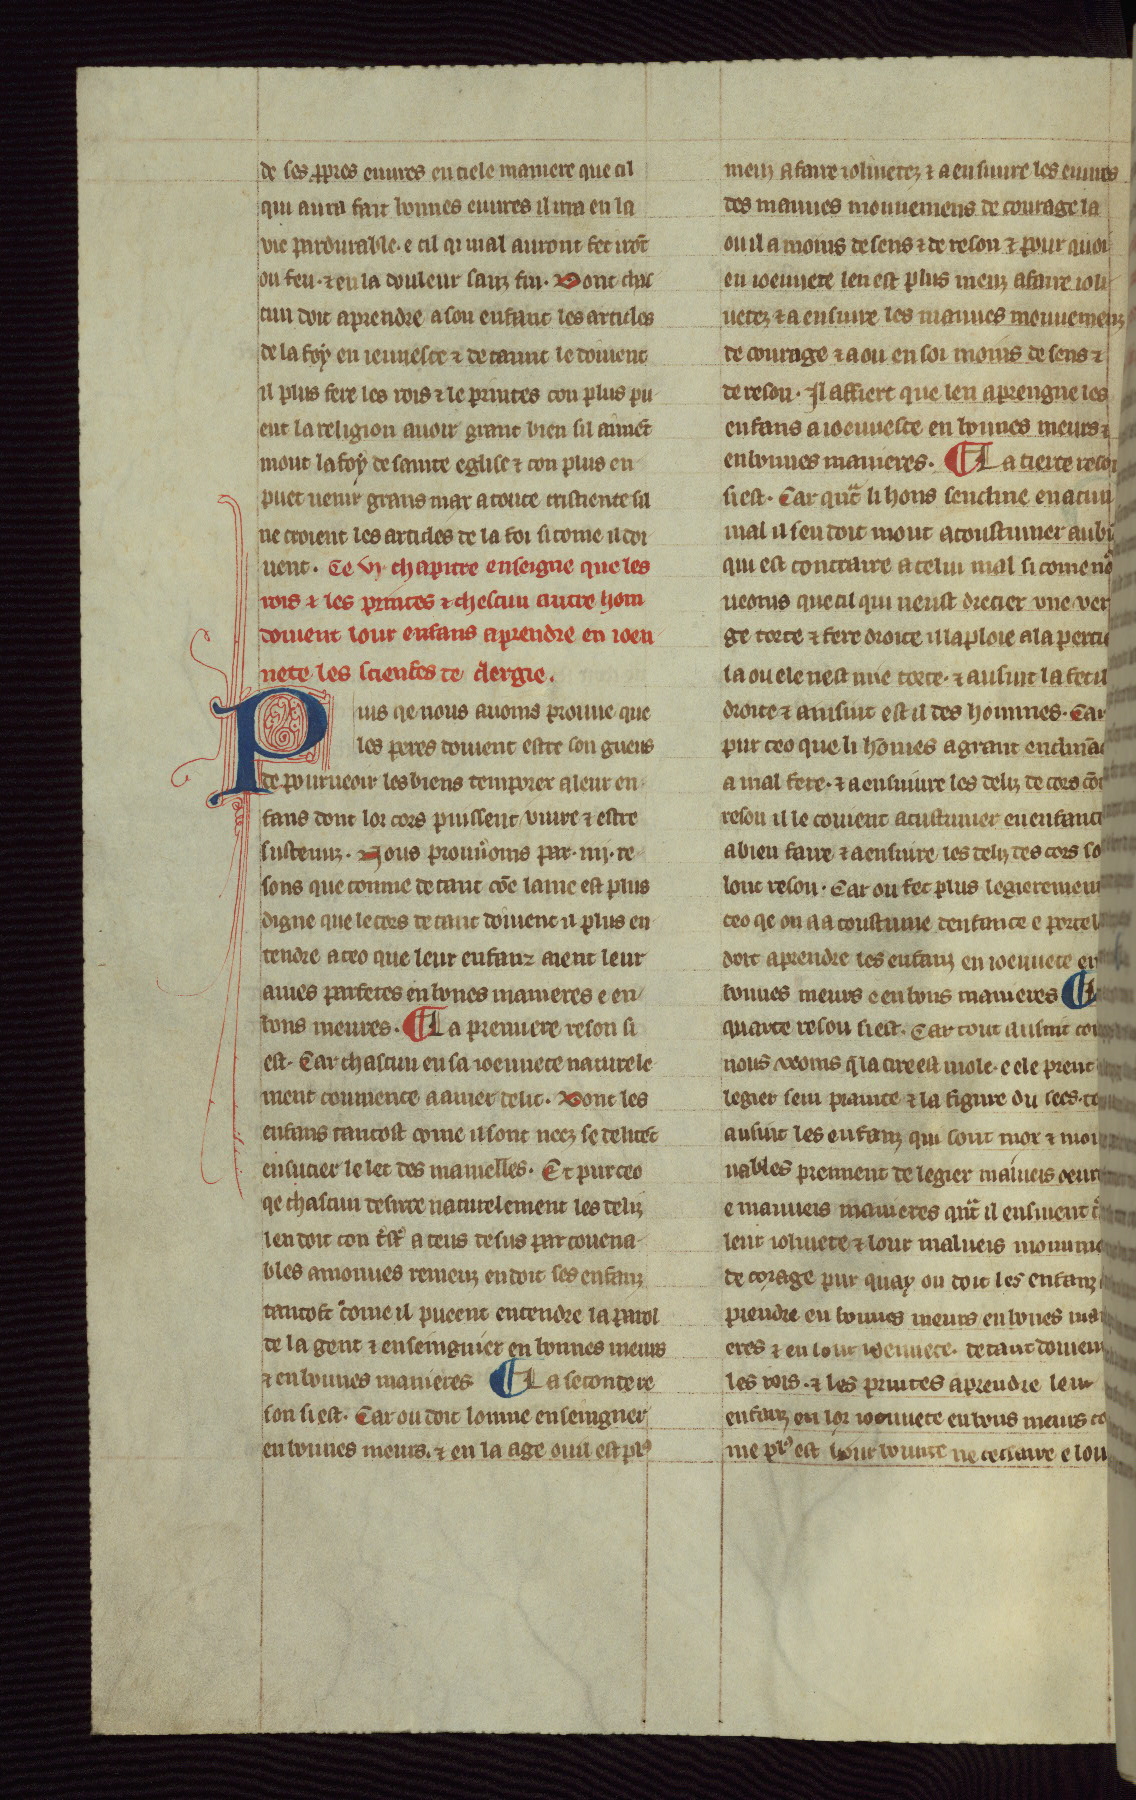 de ses ppres euures en tiele maniere que cil
qui aura fait bonnes euures il ira en la
vie pardurable. e cil qi mal auront fet irōt
ou feu. ⁊ en la douleur sanz fin. Dont chas
cun doit aprendre a son enfant les articles
de la foy en iennesce ⁊ de taunt le doiuent
il plus fere les rois ⁊ le princes con plus pu
ent la religion auoir grant bien sil aimēt
mout la foy de sainte eglise ⁊ con plus en
puet uenir grans max a toute cristiente sil
ne croient les articles de la foi si come il doi
uent. Ce vj. chapitre enseigne que les
rois ⁊ les princes ⁊ chescun autre hom
doiuent lour enfans aprendre en ioen
nete les scienses de clergie.
Puis qe nous auoms prouue que
les peres doiuent estre songneus
de pourueoir les biens temporex a leur en
fans dont lor cors puissent viure ⁊ estre
sustenuz. Nous prouuoms par. iiij. re
sons que comme de tant cōe lame est plus
digne que le cors de tant doiuent il plus en
tendre a ceo que leur enfanz aient leur
ames parfetes en bones manieres e en
bons meures. ¶ La premiere reson si
est. Car chascun en sa ioennete naturele
ment comence a amer delit. Dont les
enfans tantost come il sont neez se delitēt
en sucier le let des mamelles. Et pur ceo
qe chascun desirre naturelement les deliz
len doit con a teus desus par couena
bles amonnes remeuz en doit ses enfanz
tantost come il pueent entendre la parol
de la gent ⁊ enseingnier en bonnes meurs
⁊ en bonnes manieres ¶ La seconde re
son si est. Car ou doit lomme enseingner
en bonnes meurs. ⁊ en la age ou il est plꝰ
meuz a faire iolinetez ⁊ a ensuiure les euures
des mauues mouuemens de courage la
ou il a moins de sens ⁊ de reson ⁊ pour quoi
en ioennete len est plus meuz a faire ioli
uetez ⁊ a ensuire les mauues mouuemenz
de courage ⁊ a ou en soi moins de sens ⁊
de reson. Il affiert que len aprengne les
enfans a ioennesce en bonnes meurs ⁊
en bonnes manieres. ¶ La tierce reson
si est. Car qūt li hons sencline en aucun
mal il sen doit mout acoustumer au bi
qui est contraire a celui mal si come no
ueoms que cil qui neust drecier vne ver
ge torte ⁊ fere droite il la ploie a la partie
la ou ele nest mie torte. ⁊ ausint la fet il
droite ⁊ ausint est il des hommes. Car
pur ceo que li hōmes a grant enclinac
a mal fere. ⁊ a ensuiure les deliz de cors cōt
reson il le couient acustumer en enfance
a bien faire ⁊ a ensuire les deliz des cors so
lont reson. Car ou fet plus legierement
ceo qe on a acoustume denfance e por ce l
doit aprendre les enfanz en ioennete en
bonnes meurs e en bons manieres ¶ La
quarte reson si est. Car tout ausint com
nous veoms q̄ la cire est mole. e ele prent
legier sein prainte ⁊ la figure du sees. to
ausint les enfanz qui sont mox ⁊ moi
uables prennent de legier malueis oeur
e mauueis manieres qūt il ensiuent
leur iolinete ⁊ lour malueis mouueme
de corage pur quay ou doit les enfanz
prendre en bonnes meurs en bones mani
eres ⁊ en lour ioennete. de tant doiuent
les rois. ⁊ les princes aprendre leur
enfanz en lor ioennete en bons meurs co
me plꝰ est lour bonte necessaire e lour